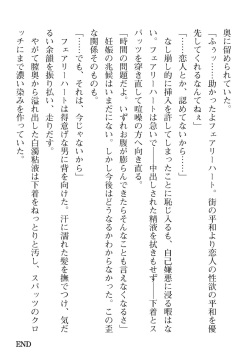 奥に留められていた。
「ふぅッ……助かったよフェアリーハート。街の平和より恋人の性欲の平和を優
先してくれるなんてねぇ」
「……恋人とか、認めてないから……」
なし崩し的に挿入を許してしまったことに恥じ入るも、自己嫌悪に浸る暇はな
い。フェアリーハートは急いで――中出しされた精液を拭きもせず――下着とス
パッツを穿き直して喧噪の方へ向き直る。
「時間の問題だよ。いずれお腹が膨らんできたらそんなことも言えなくなるさ」
妊娠の兆候はいまだにない。しかし今後はどうなるかわからなかった。この歪
な関係そのものも。
「……でも、それは、今じゃないから」
フェアリーハートは得意げな男に背を向けた。汗に濡れた髪を撫でつけ、気だ
るい余韻を振り払い、走りだす。
やがて膣奥から溢れ出した白濁粘液は下着をねっとりと汚し、スパッツのクロ
ッチにまで濃い染みを作っていた。
END